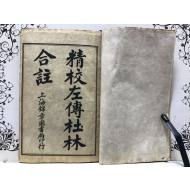 精校左傳杜林
合註
上海錦章圖書局印行